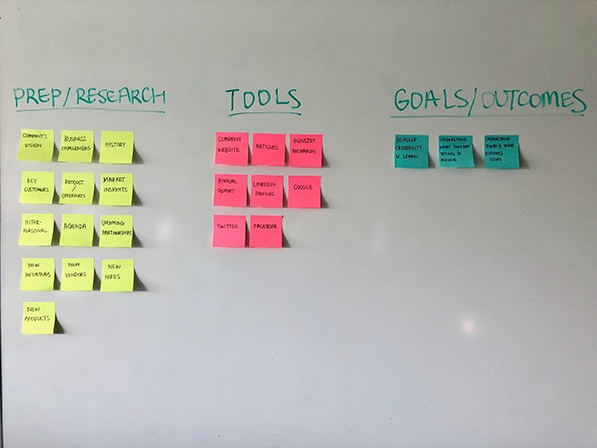 PREP/RESEARCH
COMPANY'S
VISION
BUSINESS
CHALLENGES
HISTORY
KEY
CUSTOMERS
PRODUCT
/
OFFERINGS
MARKET
INSIGHTS
INTER-
PERSONAL
AGENDA
UPCOMING
PARTNERSHIPS
NEW
INITIATIVES
NEW
VENDORS
NEW
HIRES
NEW
PRODUCTS
TOOLS
COMPANY
WEBSITE
ARTICLES
INDUSTRY
RESEARCH
ANNUAL
REPORT
LINKEDIN
PROFILES
GOOGLE
TWITTER
FACEBOOK
GOALS/OUTCOMES
DEVELOP
CREDIBILITY
UNDERSTAND
WHAT THEY ARE
TRYING TO
ACHIEVE
UNDERSTAND
THEIR
BUSINESS
ISSUES